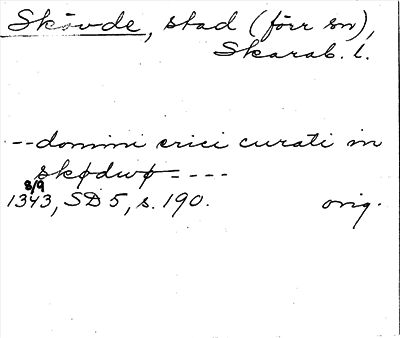 Skövde, stad (förr sn),
Skarab. l.
-- domini erici curati in
skødwø ----
8/9
1343, SD 5, s. 190. orig.